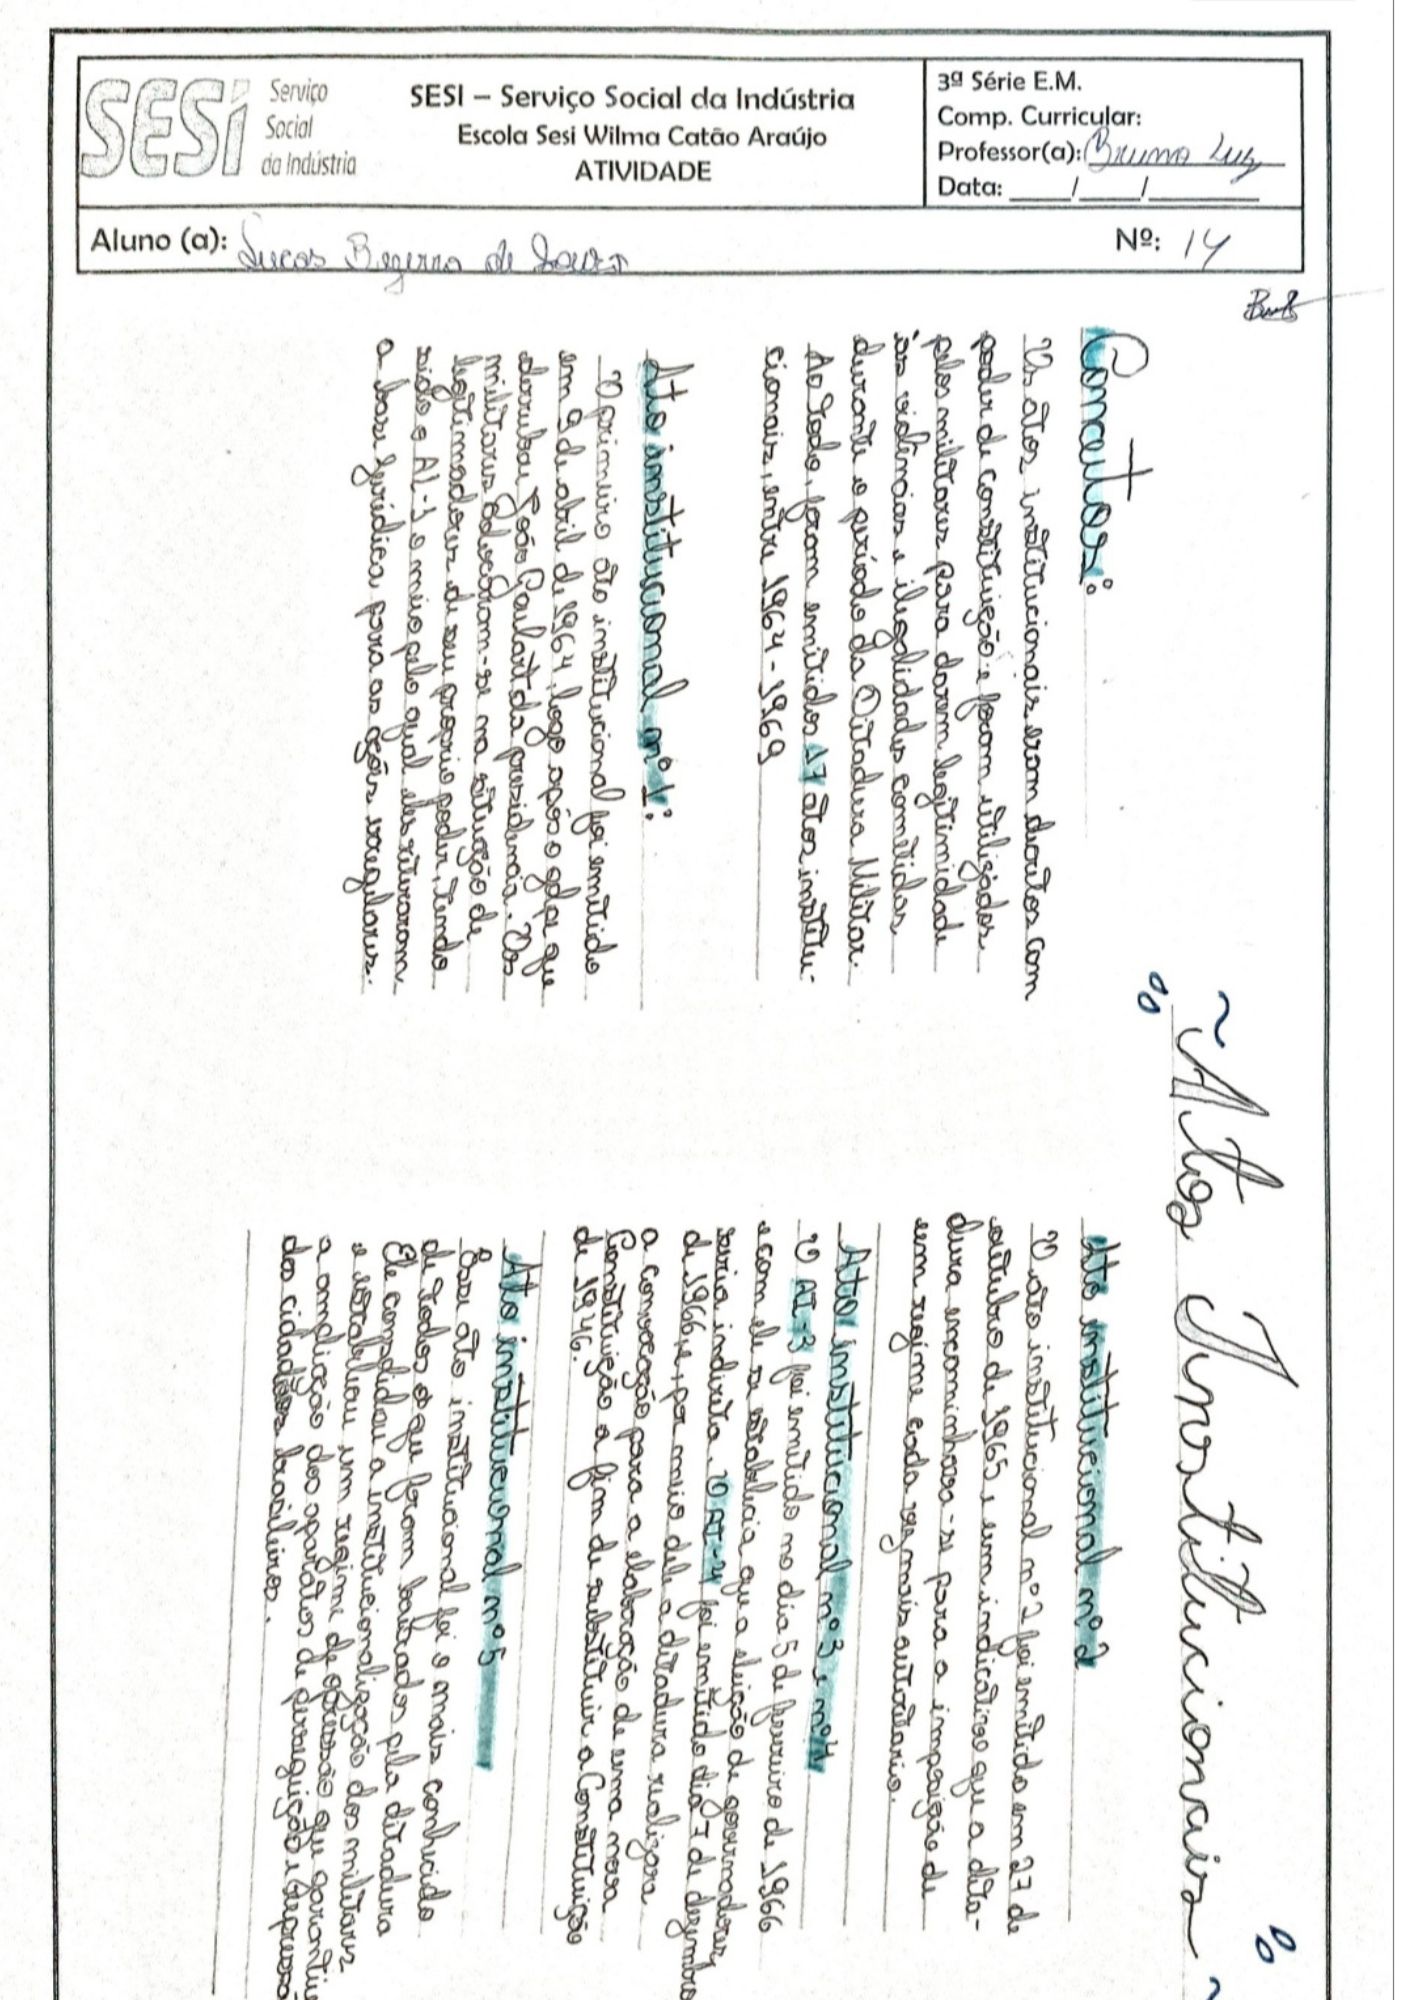 SESI Serviço
Social
da Indústria
SESI – Serviço Social da Indústria
Escola Sesi Wilma Catão Araújo
ATIVIDADE
3ª Série E.M.
Comp. Curricular:
Professor(a): Bruna Luz
Data: ____/____/________
Aluno (a): Lucas Bezerra de Souza
Nº: 14
~ Atos Institucionais ~
Conceitos:
Os atos institucionais eram decretos com
poder de constituição e foram utilizados
pelos militares para darem legitimidade
às violências e ilegalidades cometidas
durante o período da Ditadura Militar.
Ao todo, foram emitidos 17 atos institu-
cionais, entre 1964 - 1969
Ato institucional nº 1:
O primeiro ato institucional foi emitido
em 9 de abril de 1964, logo após o golpe que
derrubou João Goulart da presidencia. Os
militares colocaram-se na situação de
legitimadores de seu proprio poder, tendo
sido o AI-1 o meio pelo qual eles retiraram
a base jurídica para as ações irregulares.
Ato institucional nº 2
O ato institucional nº 2 foi emitido em 27 de
outubro de 1965 e um indicativo que a dita-
dura encaminhava-se para a imposição de
um regime cada vez mais autoritario.
Ato institucional nº 3 e nº 4
O AI-3 foi emitido no dia 5 de fevereiro de 1966
e com ele se estabelecia que a eleição de governadores
seria indireta. O AI-4 foi emitido dia 7 de dezembro
de 1966, e, por meio dele a ditadura realizara
a convocação para a elaboração de uma nova
Constituição a fim de substituir a Constituição
de 1946.
Ato institucional nº 5
Esse ato institucional foi o mais conhecido
de todos o que foram baixados pela ditadura
Ele consolidou a institucionalização dos militares
e estabeleu um regime de opressão que garantiu
a amplicação dos aparatos de perseguição e
dos cidadãos brasileiros.